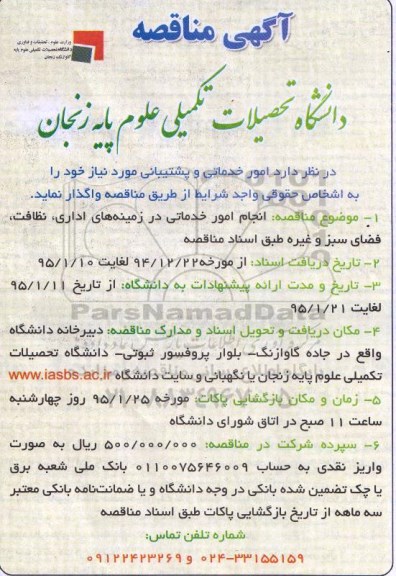 آگهی مناقصه
وزارت علوم، تحقیقات و فناوری
دانشگاه تحصیلات تکمیلی علوم پایه
گاوازنگ، زنجان
دانشگاه تحصیلات تکمیلی علوم پایه زنجان
در نظر دارد امور خدماتی و پشتیبانی مورد نیاز خود را
به اشخاص حقوقی واجد شرایط از طریق مناقصه واگذار نماید.
۱- موضوع مناقصه: انجام امور خدماتی در زمینه‌های اداری، نظافت،
فضای سبز و غیره طبق اسناد مناقصه
۲- تاریخ دریافت اسناد: از مورخه ۹۴/۱۲/۲۲ لغایت ۹۵/۱/۱۰
۳- تاریخ و مدت ارائه پیشنهادات به دانشگاه: از تاریخ ۹۵/۱/۱۱
لغایت ۹۵/۱/۲۱
ParsNamadData
۴- مکان دریافت و تحویل اسناد و مدارک مناقصه: دبیرخانه دانشگاه
واقع در جاده گاوازنگ- بلوار پروفسور ثبوتی- دانشگاه تحصیلات
تکمیلی علوم پایه زنجان یا نگهبانی و سایت دانشگاه www.iasbs.ac.ir
۵- زمان و مکان بازگشایی پاکات: مورخ ۹۵/۱/۲۵ روز چهارشنبه
ساعت ۱۱ صبح در اتاق شورای دانشگاه
۶- سپرده شرکت در مناقصه: ۵۰۰/۰۰۰/۰۰۰ ریال به صورت
واریز نقدی به حساب ۰۱۱۰۰۷۵۶۴۶۰۰۹ بانک ملی شعبه برق
یا چک تضمین شده بانکی در وجه دانشگاه و یا ضمانت‌نامه بانکی معتبر
سه ماهه از تاریخ بازگشایی پاکات طبق اسناد مناقصه
شماره تلفن تماس:
۰۲۴-۳۳۱۵۵۱۵۹ و ۰۹۱۲۲۴۲۳۲۶۹